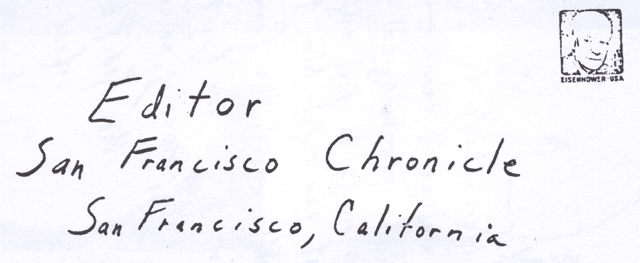 EISENHOWER USA
Editor
San Francisco Chronicle
San Francisco, California